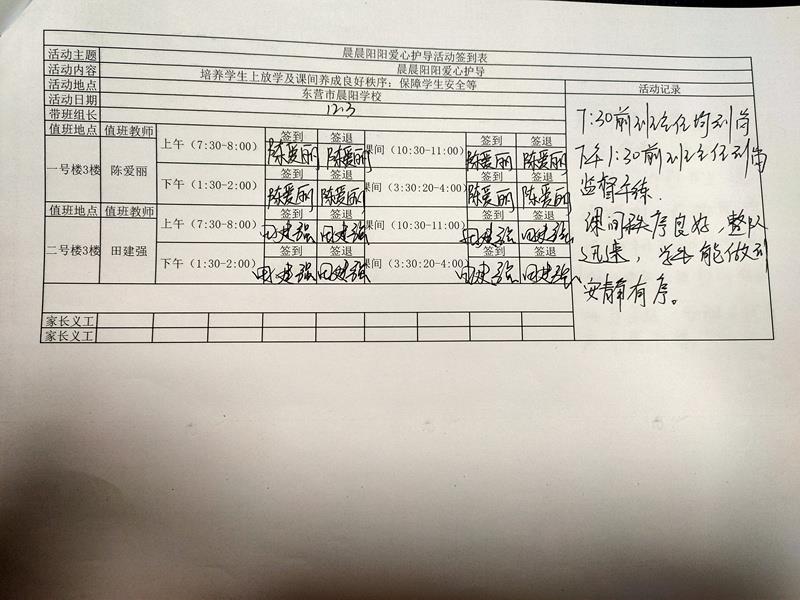 晨晨阳阳爱心护导活动签到表
活动主题 晨晨阳阳爱心护导
活动内容 培养学生上放学及课间养成良好秩序；保障学生安全等
活动地点 东营市晨阳学校
活动日期 12.3
带班组长
活动记录
值班地点 值班教师 上午（7:30-8:00） 签到 签退 课间（10:30-11:00） 签到 签退
陈爱丽 陈爱丽 陈爱丽 陈爱丽
一号楼3楼 陈爱丽
下午（1:30-2:00） 签到 签退 课间（3:30:20-4:00） 签到 签退
陈爱丽 陈爱丽 陈爱丽 陈爱丽
值班地点 值班教师 上午（7:30-8:00） 签到 签退 课间（10:30-11:00） 签到 签退
田建强 田建强 田建强 田建强
二号楼3楼 田建强
下午（1:30-2:00） 签到 签退 课间（3:30:20-4:00） 签到 签退
田建强 田建强 田建强 田建强
家长义工
家长义工
7:30前班主任均到岗
下午1:30前班主任到岗
监督午练.
课间秩序良好,整队
学生能做到
安静有序。